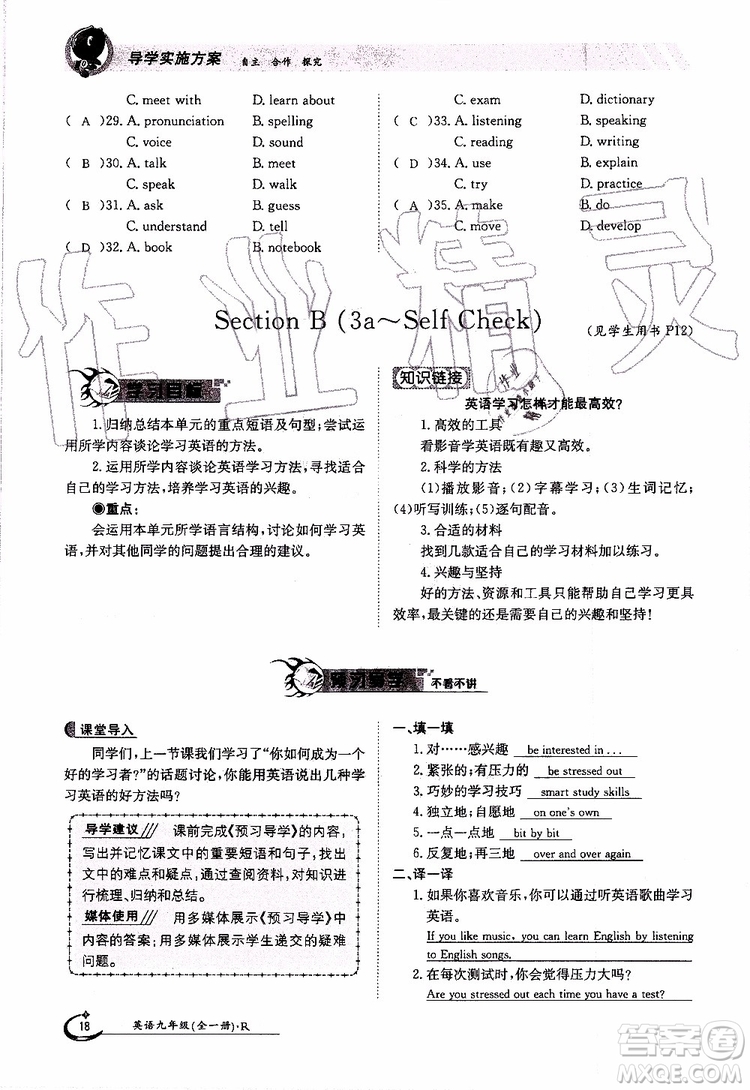 导学实施方案 自主 合作 探究
C. meet with D. learn about
( A )29. A. pronunciation B. spelling
C. voice D. sound
( B )30. A. talk B. meet
C. speak D. walk
( B )31. A. ask B. guess
C. understand D. tell
( D )32. A. book B. notebook
C. exam D. dictionary
( C )33. A. listening B. speaking
C. reading D. writing
( D )34. A. use B. explain
C. try D. practice
( A )35. A. make B. do
C. move D. develop
Section B (3a～Self Check)
(见学生用书 P12)
学习目标
1. 归纳总结本单元的重点短语及句型;尝试运
用所学内容谈论学习英语的方法。
2. 运用所学内容谈论英语学习方法,寻找适合
自己的学习方法,培养学习英语的兴趣。
◉重点:
会运用本单元所学语言结构,讨论如何学习英
语,并对其他同学的问题提出合理的建议。
知识链接
英语学习怎样才能最高效?
1. 高效的工具
看影音学英语既有趣又高效。
2. 科学的方法
(1)播放影音;(2)字幕学习;(3)生词记忆;
(4)听写训练;(5)逐句配音。
3. 合适的材料
找到几款适合自己的学习材料加以练习。
4. 兴趣与坚持
好的方法、资源和工具只能帮助自己学习更具
效率,最关键的还是自己的兴趣和坚持!
预习导学 不看不讲
课堂导入
同学们,上一节课我们学习了“你如何成为一个
好的学习者?”的话题讨论,你能用英语说出几种学
习英语的好方法吗?
导学建议 课前完成《预习导学》的内容,
写出并记忆课文中的重要短语和句子,找出
文中的难点和疑点,通过查阅资料,对知识进
行梳理、归纳和总结。
媒体使用 用多媒体展示《预习导学》中
内容的答案;用多媒体展示学生递交的疑难
问题。
一、填一填
1. 对……感兴趣 be interested in . . .
2. 紧张的;有压力的 be stressed out
3. 巧妙的学习技巧 smart study skills
4. 独立地;自愿地 on one's own
5. 一点一点地 bit by bit
6. 反复地;再三地 over and over again
二、译一译
1. 如果你喜欢音乐,你可以通过听英语歌曲学习
英语。
If you like music, you can learn English by listening
to English songs.
2. 在每次测试时,你会觉得压力大吗?
Are you stressed out each time you have a test?
18 英语九年级(全一册)·R
作业精灵
答案圈
MXQE.COM